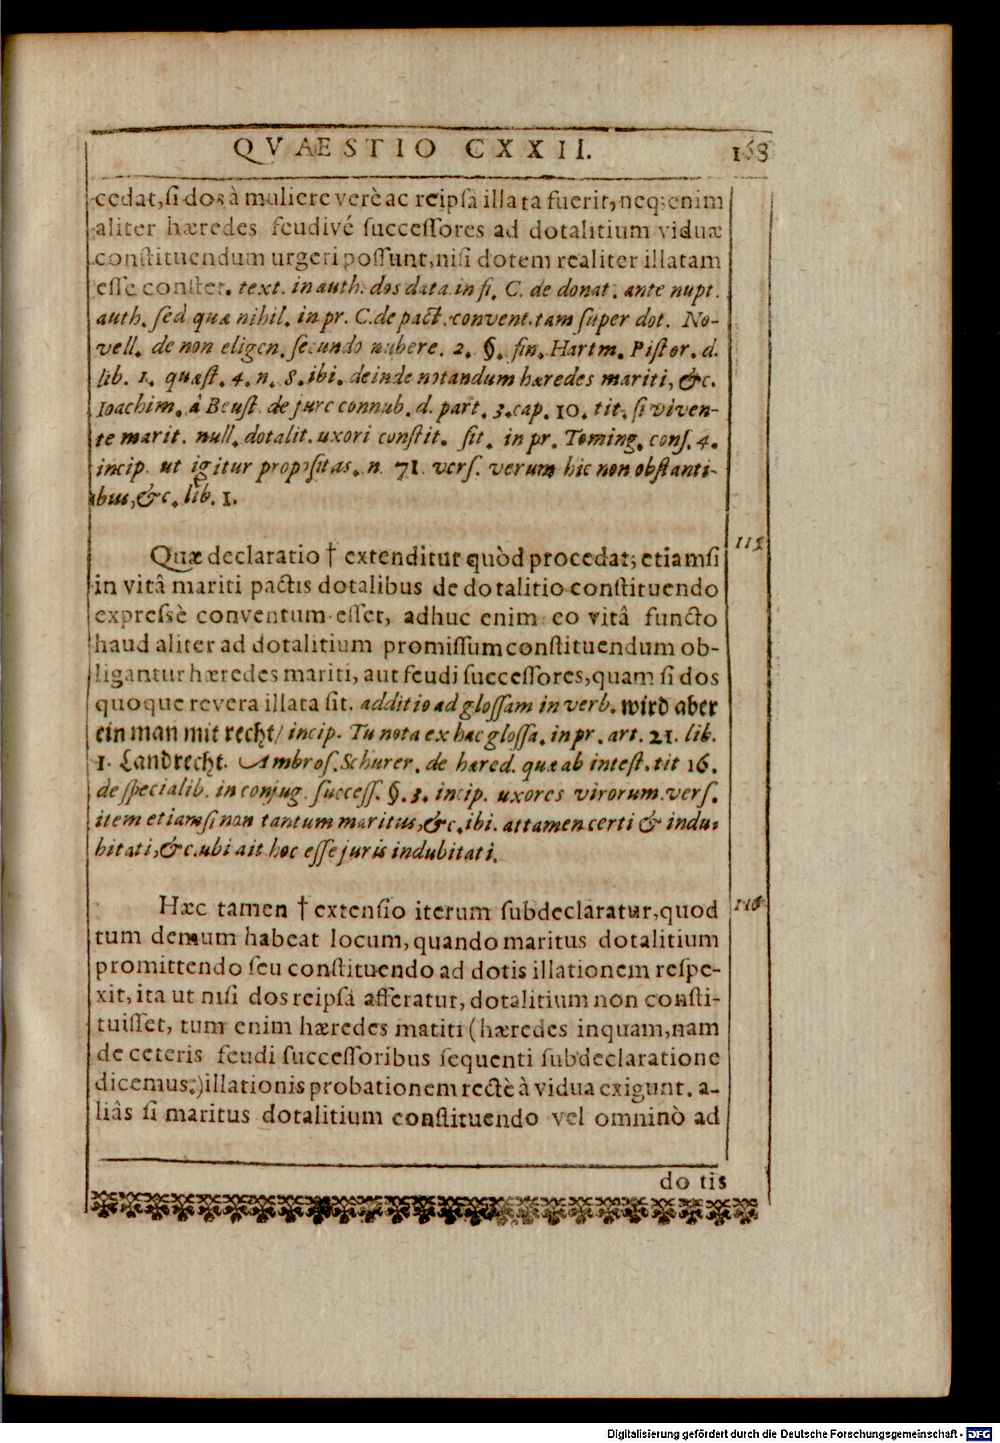 QVAESTIO CXXII. 168
cedat, si dos à muliere verè ac reipsâ illata fuerit, neq; enim
aliter hæredes feudivé successores ad dotalitium viduæ
constituendum urgeri possunt, nisi dotem realiter illatam
esse constet. text. in auth. dos data. in fi. C. de donat. ante nupt.
auth. sed quæ nihil. in pr. C. de pact. convent. tam super dot. No-
vell. de non eligen. secundo nubere. 2. §. fin. Hartm. Pistor. d.
lib. 1. quæst. 4. n. 8. ibi. deinde notandum hæredes mariti, &c.
Ioachim. à Beust. de jure connub. d. part. 3. cap. 10. tit. si viven-
te marit. null. dotalit. uxori constit. sit. in pr. Toming. cons. 4.
incip. ut igitur propositas. n. 71. vers. verum hic non obstanti-
bus, &c. lib. 1.
Quæ declaratio † extenditur quòd procedat, etiamsi 115
in vitâ mariti pactis dotalibus de dotalitio constituendo
expressè conventum esset, adhuc enim eo vitâ functo
haud aliter ad dotalitium promissum constituendum ob-
ligantur hæredes mariti, aut feudi successores, quam si dos
quoque revera illata sit. additio ad glossam in verb. wird aber
ein man mit recht/ incip. Tu nota ex hac glossa. in pr. art. 21. lib.
1. Landrecht. Ambros. Schurer. de hæred. quæ ab intest. tit 16.
de specialib. in conjug. success. §. 3. incip. uxores virorum. vers.
item etiamsi non tantum maritus, &c. ibi. attamen certi & indu-
bitati, &c. ubi ait hoc esse juris indubitati.
Hæc tamen † extensio iterum subdeclaratur, quod 116
tum demum habeat locum, quando maritus dotalitium
promittendo seu constituendo ad dotis illationem respe-
xit, ita ut nisi dos reipsâ afferatur, dotalitium non consti-
tuisset, tum enim hæredes matiti (hæredes inquam, nam
de ceteris feudi successoribus sequenti subdeclaratione
dicemus;) illationis probationem rectè à vidua exigunt. a-
liâs si maritus dotalitium constituendo vel omninò ad
do tis
Digitalisierung gefördert durch die Deutsche Forschungsgemeinschaft - DFG